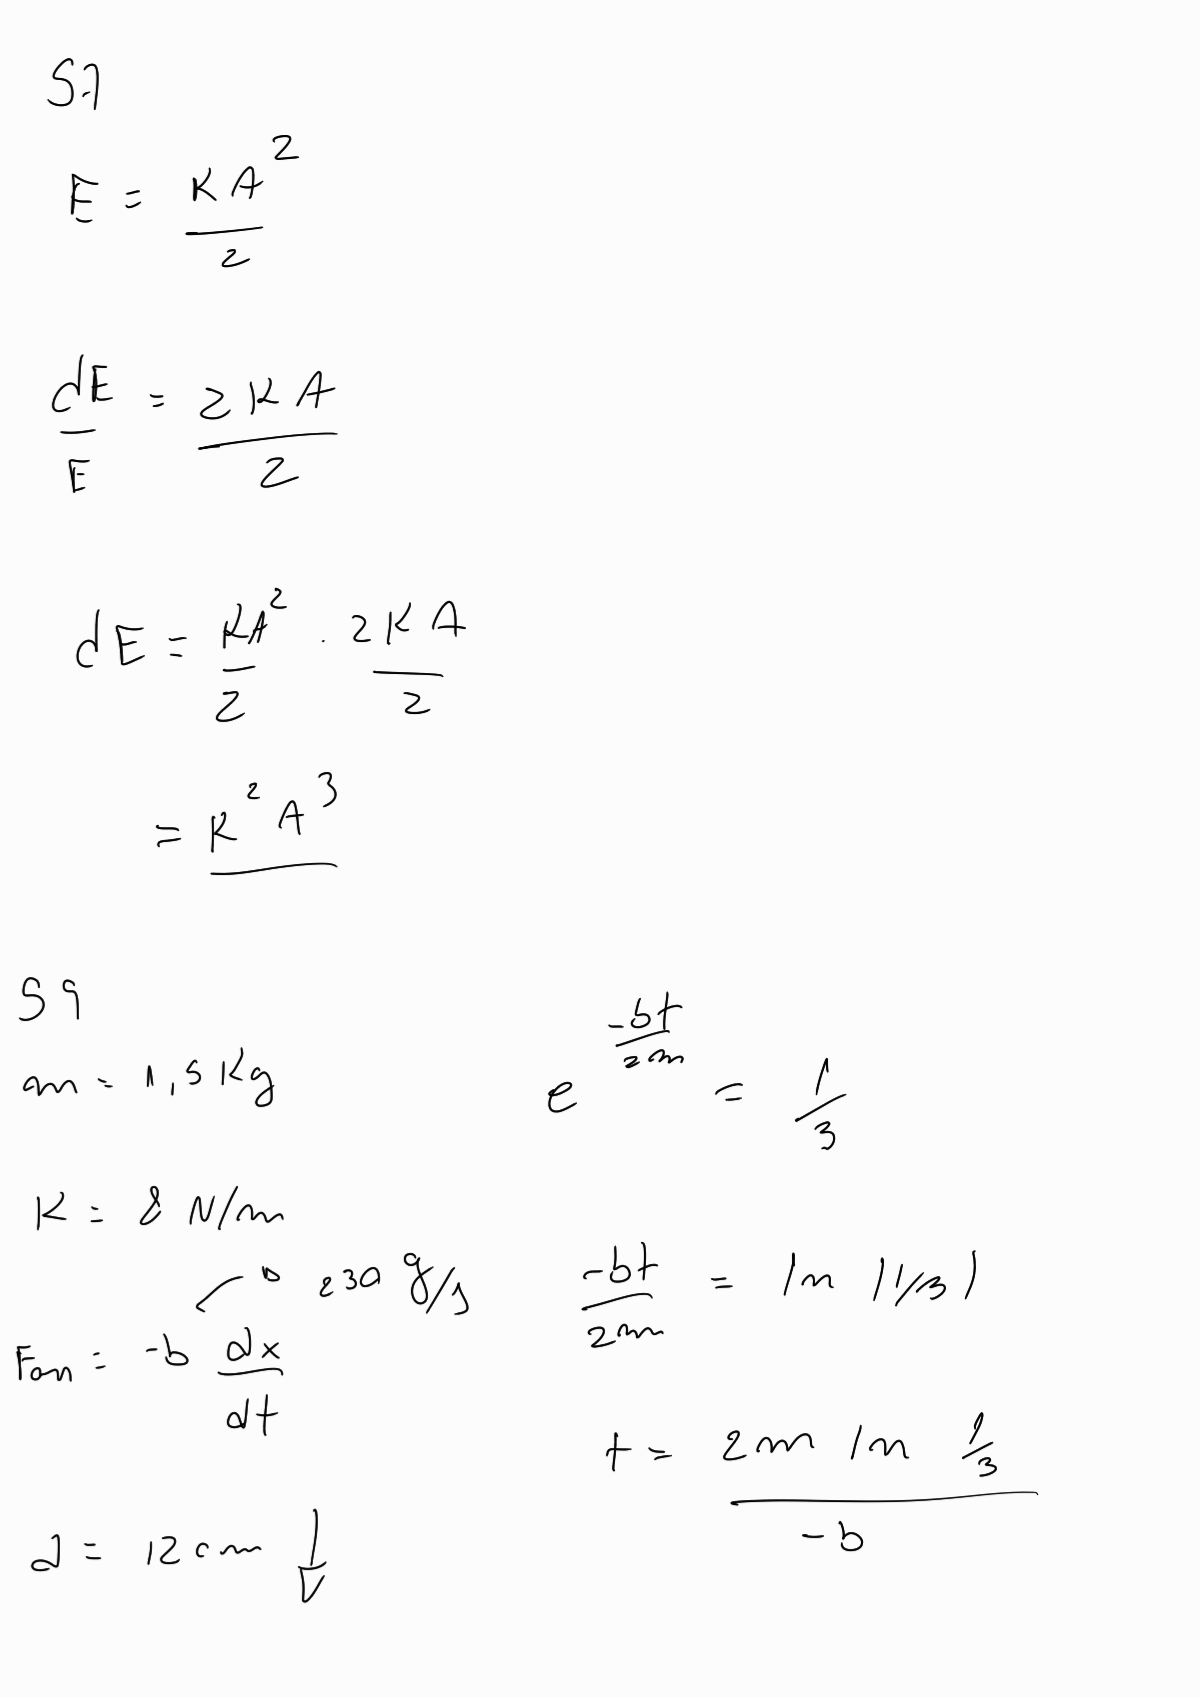 57
E = KA^2/2
dE/E = 2KA/2
dE = KA^2/2 . 2KA/2
= K^2 A^3
59
m = 1,5 Kg
K = 8 N/m
230 g/s
Fam = -b dx/dt
d = 12 cm ↓
e^(-bt/2m) = 1/3
-bt/2m = ln |1/3|
t = 2m ln 1/3 / -b